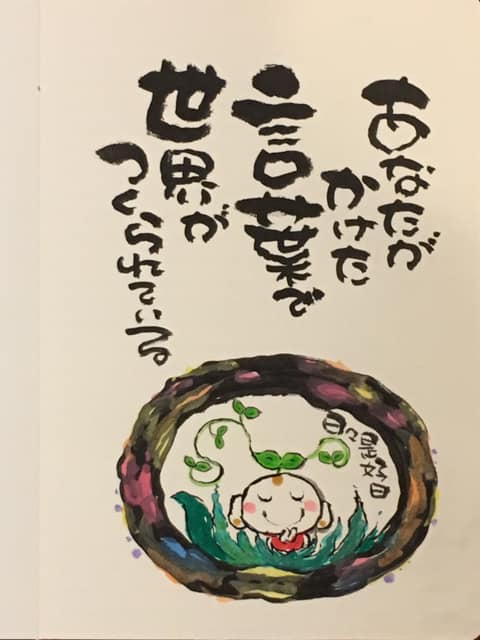 あなたが
かけた
言葉で
世界が
つくられている
日々是好日